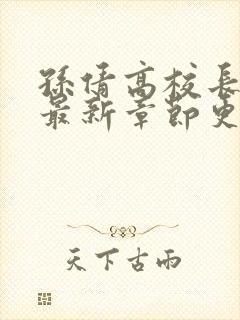 孫倩高校長
最新章節更
天下古雨